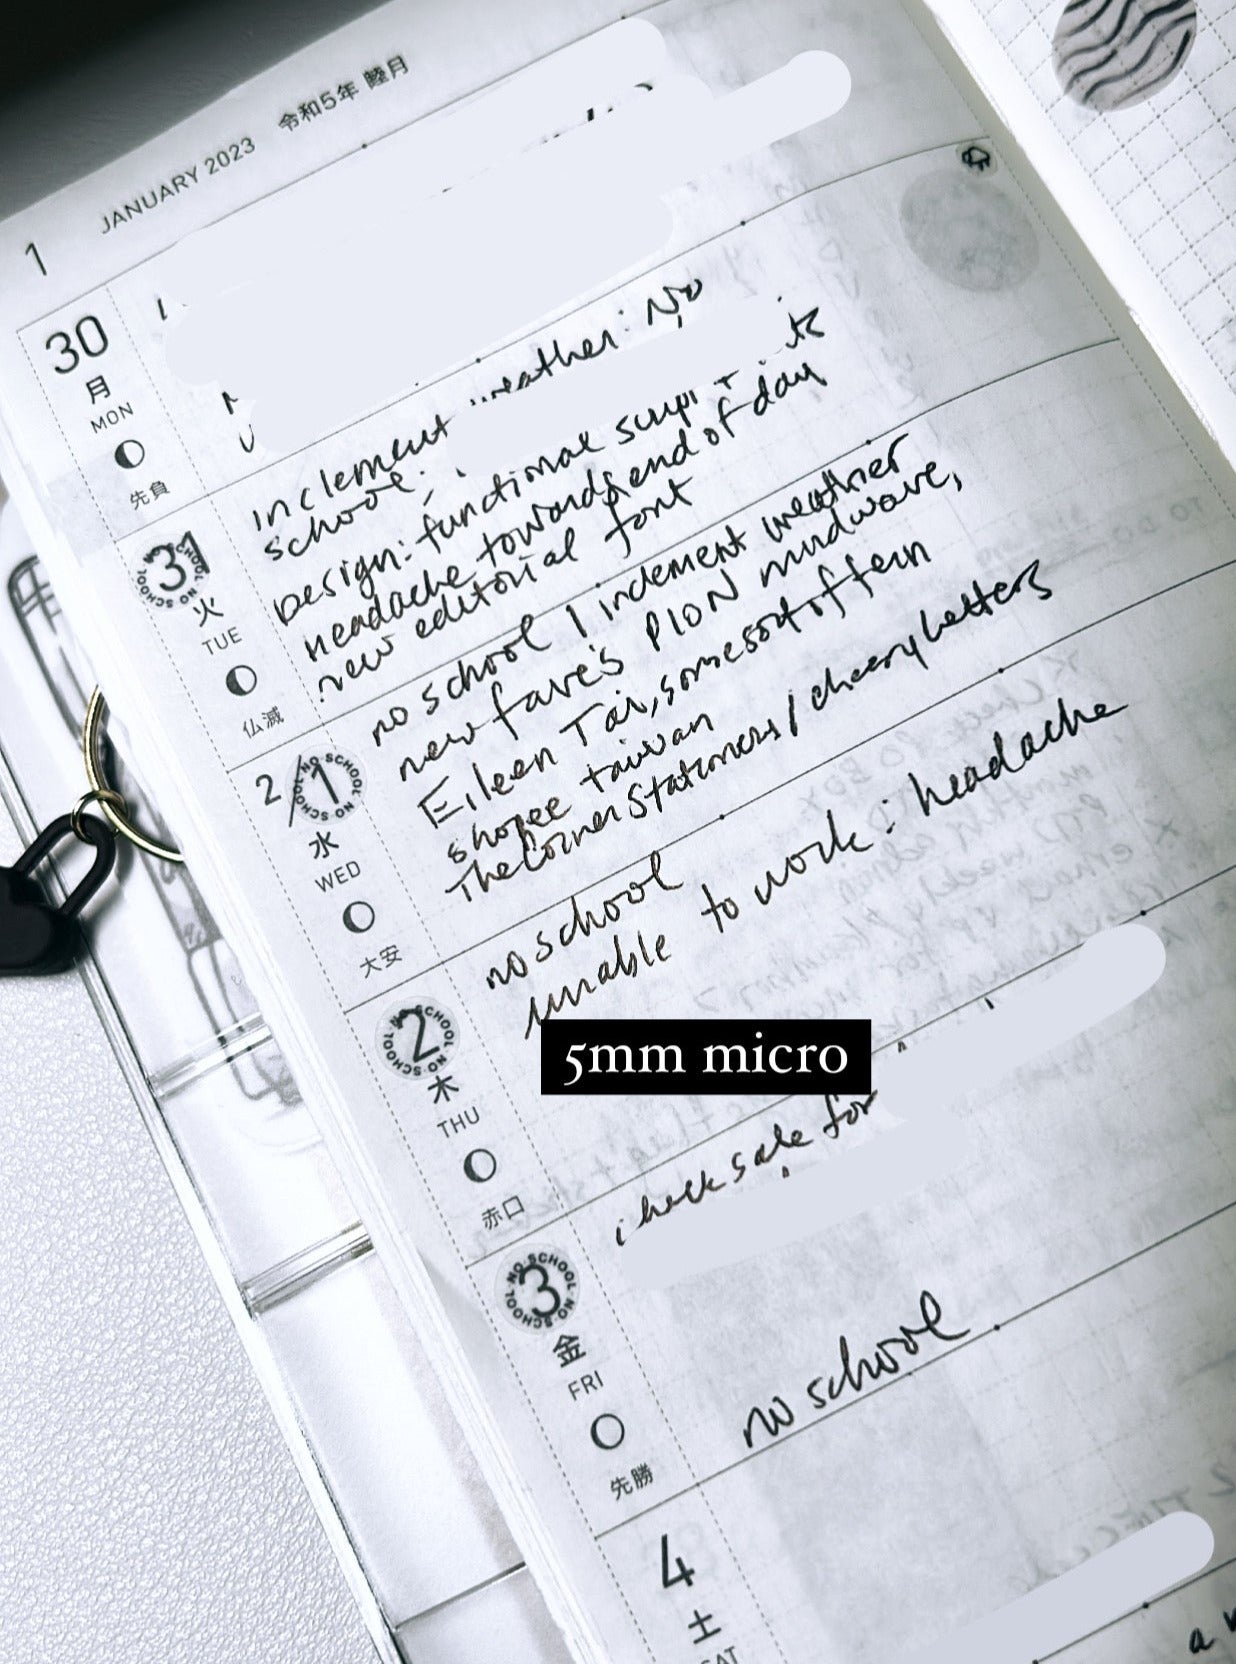 1
JANUARY 2023 令和5年 睦月
30
月
MON
先負
inclement weather: No
school;
Design: functional script
Headache towards end of day
new editorial font
31
NO SCHOOL NO SCHOOL
火
TUE
仏滅
no school / inclement weather
new fave's PION mudwave,
Eileen Tai, somesort of fern
shopee taiwan
The Corner Stationers / cheery letters
2/1
NO SCHOOL NO SCHOOL
水
WED
大安
no school
unable to work: headache
2
NO SCHOOL NO SCHOOL
木
THU
赤口
5mm micro
check sale for
3
NO SCHOOL NO SCHOOL
金
FRI
先勝
no school
4
土